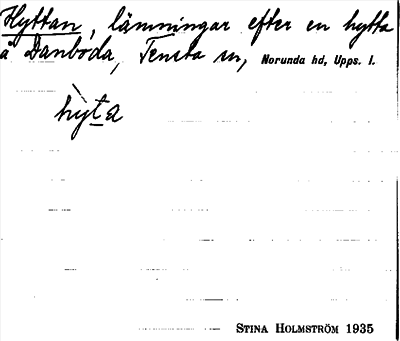 Hyttan, lämningar efter en hytta
å Danboda, Tensta sn, Norunda hd, Upps. l.
hỳta
STINA HOLMSTRÖM 1935